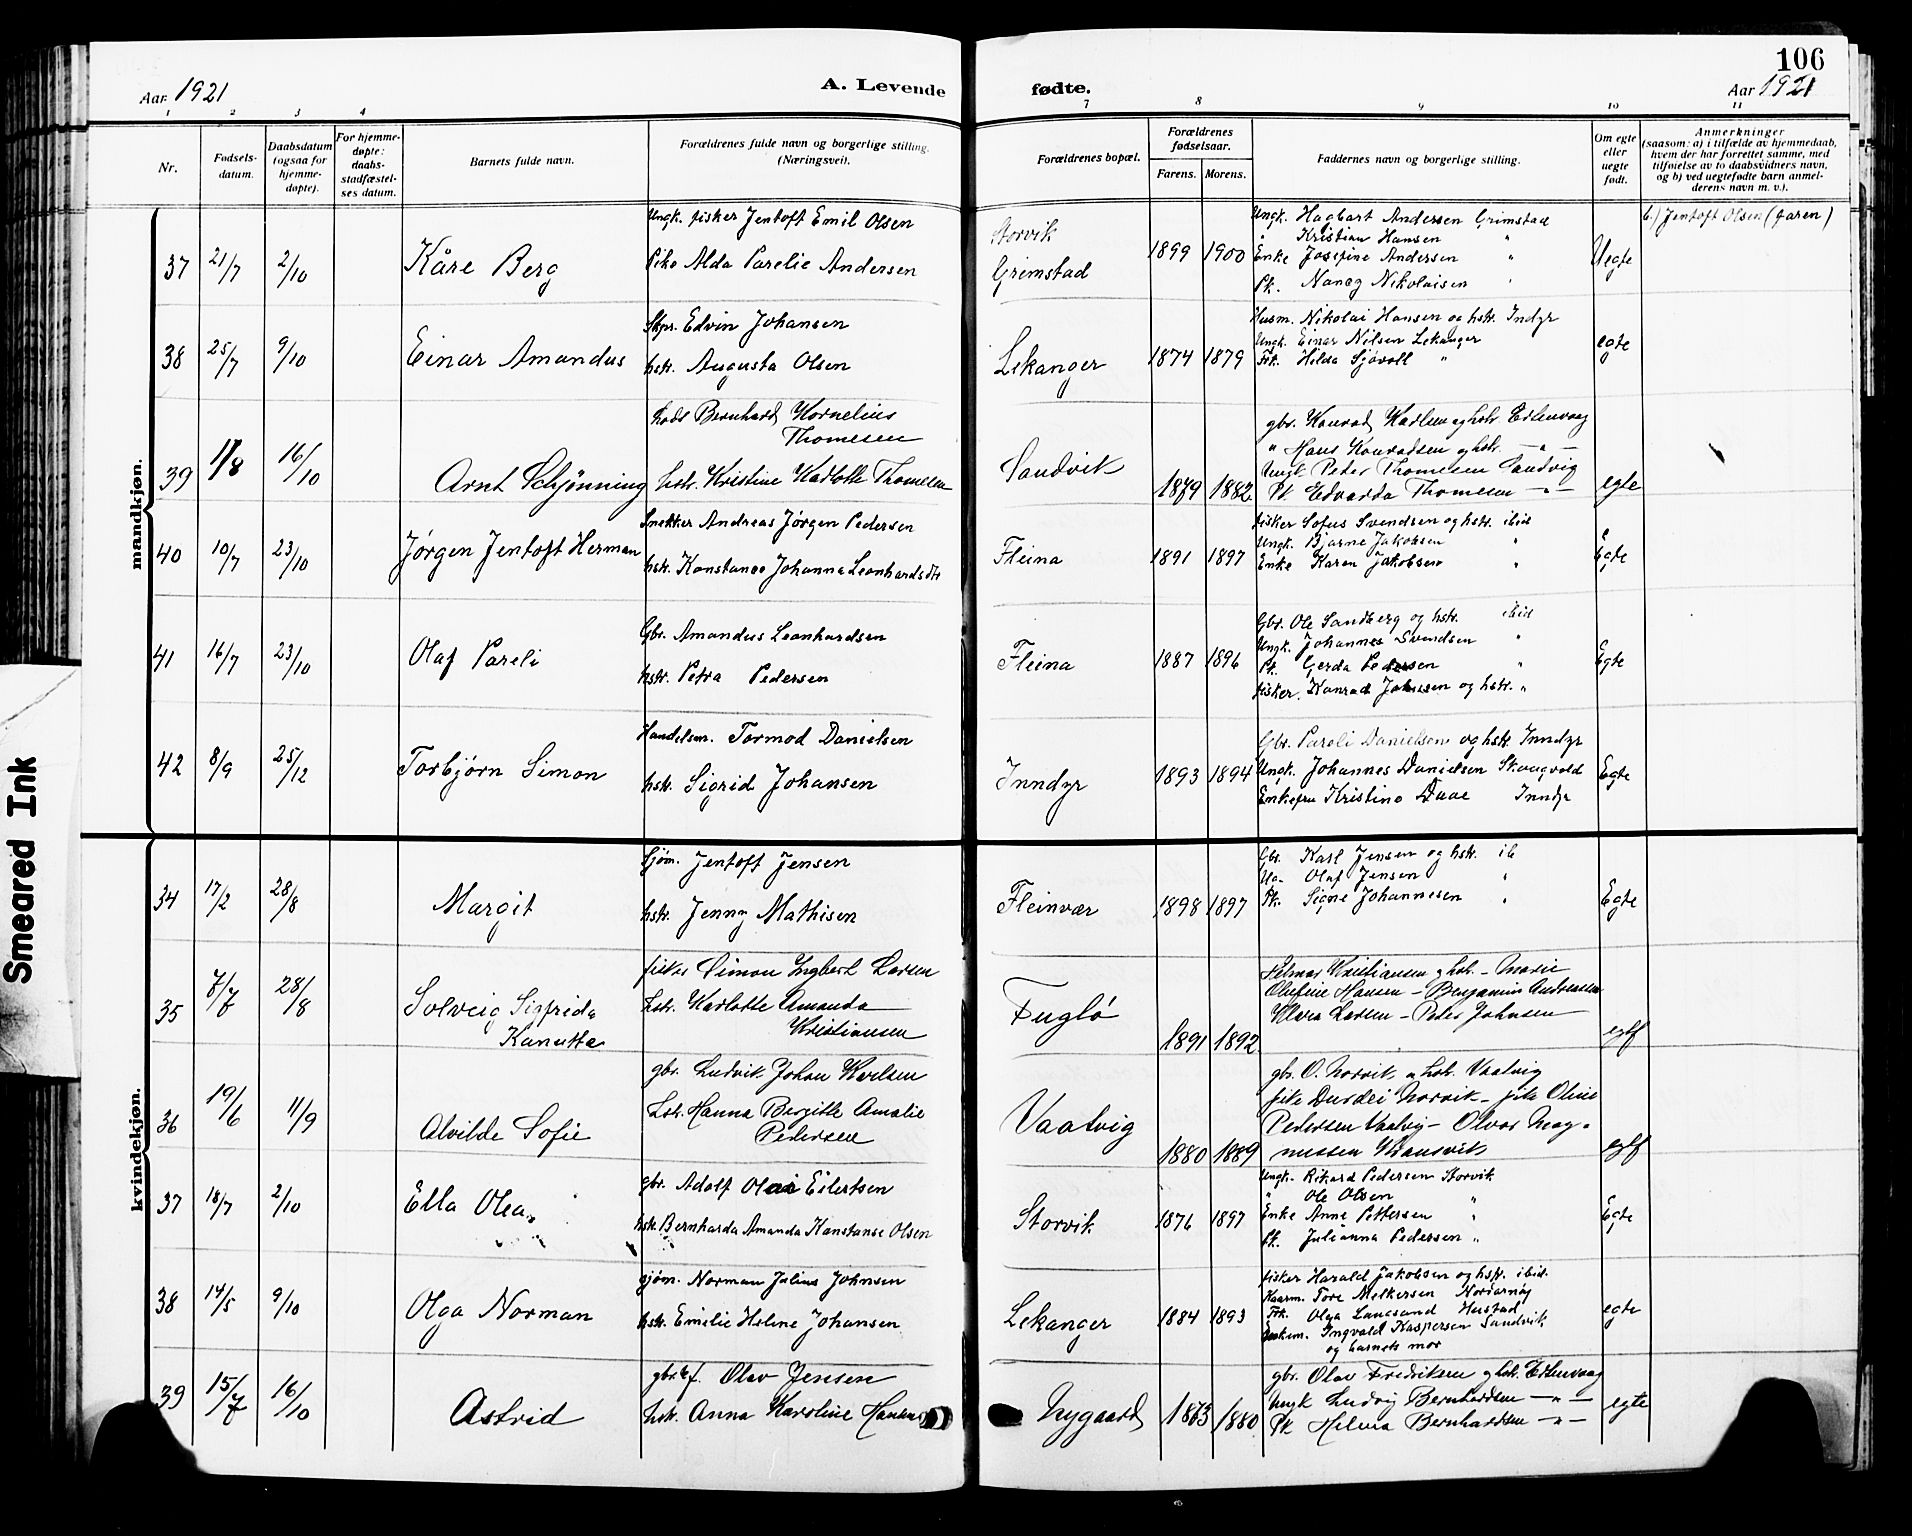 106
Aar 1921
A. Levende
fødte.
Aar 1921
1 2 3 4
7 8 9 10 11
Nr.
Fødsels-
datum.
Daabsdatum
(ogsaa for
hjemme-
døpte).
For hjemme-
døpte:
daabs-
stadfæstel-
ses datum.
Barnets fulde navn.
Forældrenes fulde navn og borgerlige stilling.
(Næringsvei).
Forældrenes bopæl.
Forældrenes
fødselsaar.
Farens. Morens.
Faddernes navn og borgerlige stilling.
Om egte
eller
uegte
født.
Anmerkninger
(saasom: a) i tilfælde av hjemmedaab,
hvem der har forrettet samme, med
tilføielse av to daabsvidners navn,
og b) ved uegtefødte barn anmel-
derens navn m. v.).
mandkjøn.
37 21/7 2/10 Kåre Berg
Ungk. fisker Jentoft Emil Olsen
Pike Alda Parelie Andersen
Storvik
Grimstad
1899 1900
Ungk. Hagbart Andersen Grimstad
" Kristian Hansen "
Enke Josefine Andersen "
Pk. Nancy Nikolaisen "
Uegte
b.) Jentoft Olsen (faren)
38 25/7 9/10 Einar Amandus
Skpr. Edvin Johansen
hstr. Augusta Olsen
Lekanger
1874 1879
Husm. Nikolai Hansen og hstr. Indyr
Ungk. Einar Nilsen Lekanger
Frk. Hilda Sjøvoll "
egte
39 1/8 16/10 Arnt Schjønning
Lods Bernhard Kornelius
Thomesen
hstr. Kristine Karlotte Thomesen
Sandvik
1879 1882
gbr. Konrad Karlsen og hstr. Edlenvaag
" Hans Konradsen og hstr. — " —
Ungk Peder Thomesen Sandvig
Pk Edvarda Thomesen — " —
egte
40 10/7 23/10 Jørgen Jentoft Herman
Snekker Andreas Jørgen Pedersen
hstr. Konstance Johanna Leonhardsdtr
Fleina
1891 1897
fisker Sofus Svendsen og hstr. ibid
Ungk. Bjarne Jakobsen "
Enke Karen Jakobsen "
Egte
41 16/7 23/10 Olaf Pareli
Gbr. Amandus Leonhardsen
hstr. Petra Pedersen
Fleina
1887 1896
Gbr. Ole Sandberg og hstr. ibid
Ungk. Johannes Svendsen "
Pk. Gerda Pedersen "
fisker. Konrad Johnsen og hstr. "
Egte
42 8/9 25/12 Torbjørn Simon
Handelsm. Tormod Danielsen
hstr. Sigrid Johansen
Inndyr
1893 1894
Gbr. Pareli Danielsen og hstr. Inndyr
Ungk. Johannes Danielsen Skaugvold
Enkefru Kristine Daae Inndyr
Egte
kvindekjøn.
34 17/2 28/8 Margit
Sjøm. Jentoft Jensen
hstr. Jenny Mathisen
Fleinvær
1898 1897
Gbr. Karl Jensen og hstr. ib
Olaf Jensen "
Pk. Signe Johannesen "
Egte
35 7/7 28/8 Solveig Sigfrida
Kanutta
fisker Simon Ingbert Larsen
hstr. Karlotte Amanda
Kristiansen
Fuglø
1891 1892
Hilmar Kristiansen og hstr. – Marie
Olufine Hansen – Benjamin Andreassen
Klara Larsen – Peder Johnsen
egtf
36 19/6 11/9 Alvilde Sofie
gbr. Ludvik Johan Karlsen
hstr. Hanna Bergitte Amalie
Pedersen
Vaatvig
1880 1889
gbr. O. Norvik og hstr. Vaatvig
pike Durdei Norvik – pike Oline
Pedersen Vaatvig – Olvar Mag-
nussen Kransvik
egtf
37 18/7 2/10 Ella Olea
gbr. Adolf Olai Eilertsen
hstr. Bernharda Amanda Konstanse Olsen
Storvik
1876 1897
Ungk. Rikard Pedersen Storvik
" Ole Olsen "
Enke Anne Pettersen "
Pk. Julianna Pedersen "
Egte
38 14/5 9/10 Olga Norman
sjøm. Norman Julius Johnsen
hstr. Emelie Helene Johansen
Lekanger
1884 1893
fisker Harald Jakobsen og hstr. ibid.
Tore Melkersen Nordarnøy
Frk. Olga Langsand Hustad
Enkem. Ingvald Kaspersen Sandvik
og barnets mor
egte
39 15/7 16/10 Astrid
gbr. Olav Jensen
hstr. Anna Karoline Hansen
Nygaard
1873 1880
gbr. Olav Fredriksen og hstr. Edlenvaag
Ungk Ludvig Bernhardsen — " —
Pk Helma Bernhardsen — " —
egte
Smeared Ink